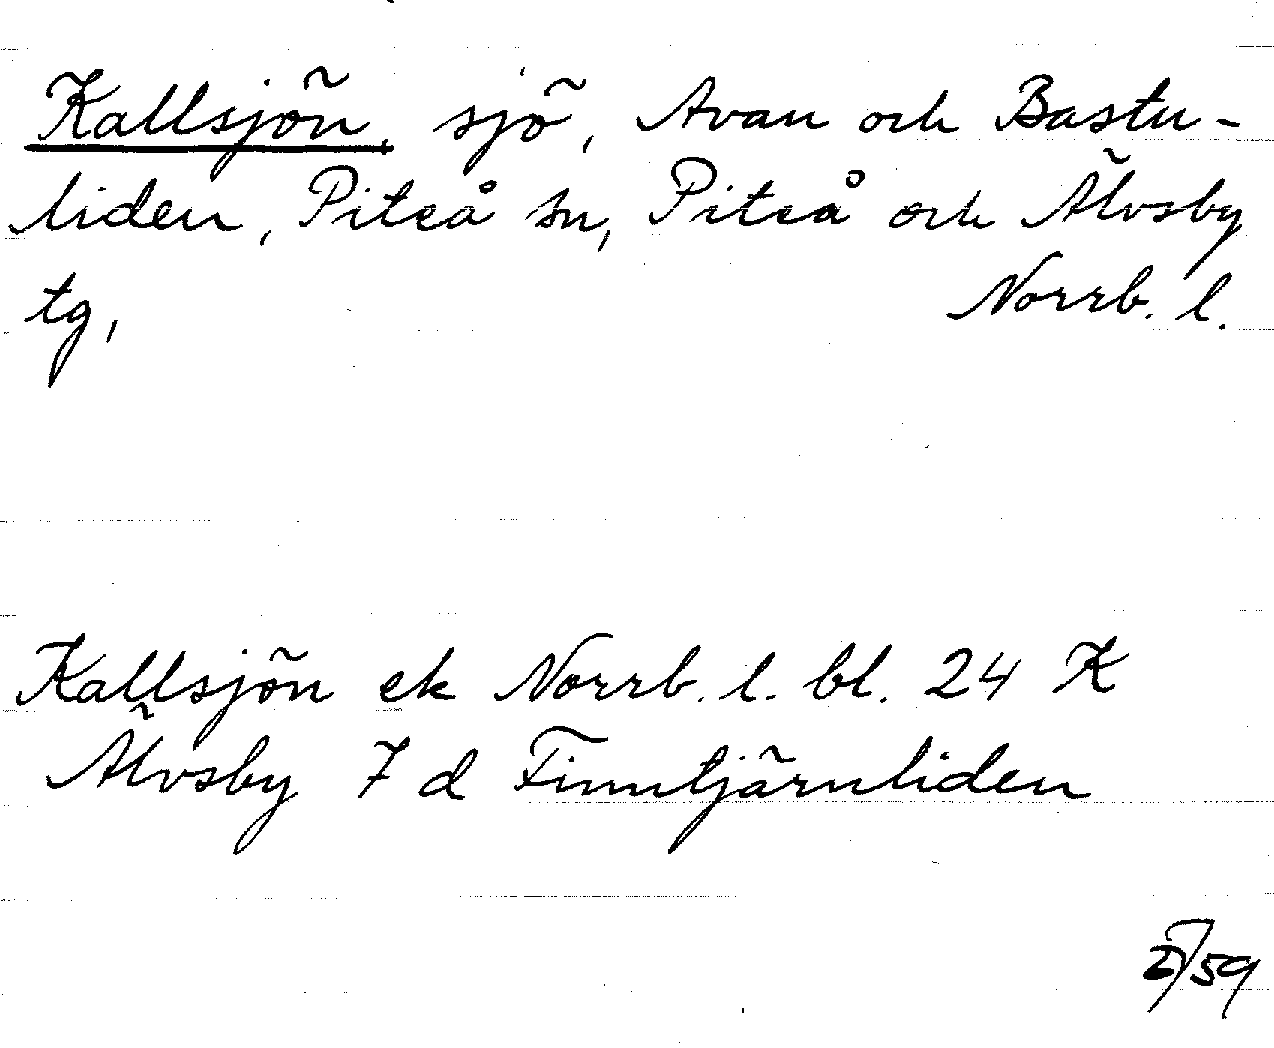 Kallsjön, sjö, Avan och Bastu-
liden, Piteå sn, Piteå och Älvsby
tg,
Norrb. l.
Kallsjön ek Norrb. l. bl. 24 K
Älvsby 7 d Finntjärnliden
/59